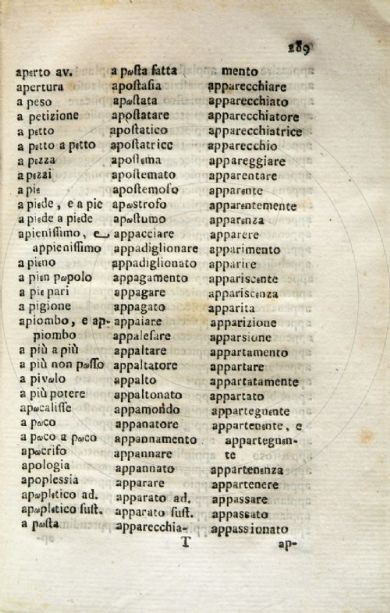 289
apεrto av.
apertura
a peso
a petizione
a pεtto
a pεtto a pεtto
a pεzza
a pεzzi
a piε
a piεde , e a piε
a piεde a piεde
apieniſſimo, e
appieniſſimo
a piεno
a piεn pωpolo
a piε pari
a pigione
apiombo, e ap-
piombo
a più a più
a più non pωſſo
a pivωlo
a più potere
apωcaliſſe
a pωco
a pωco a pωco
apωcrifo
apologia
apopleſſia
apωplεtico ad.
apωplεtico ſuſt.
a pωſta
a pωſta fatta
apoſtaſia
apωſtata
apoſtatare
apoſtatico
apoſtatrice
apoſtεma
apoſtemato
apoſtemoſo
apωſtrofo
apωſtumo
appacciare
appadiglionare
appadiglionato
appagamento
appagare
appagato
appaiare
appaleſare
appaltare
appaltatore
appalto
appaltonato
appamωndo
appanatore
appannamento
appannare
appannato
apparare
apparato ad.
apparato ſuſt.
apparecchia-
mento
apparecchiare
apparecchiato
apparecchiatore
apparecchiatrice
apparecchio
appareggiare
apparentare
apparεnte
apparεntemente
apparεnza
apparere
apparimento
apparire
appariscεnte
appariscεnza
apparita
apparizione
apparsione
appartamento
appartare
appartatamente
appartato
appartegnεnte
appartenεnte, e
appartegnεn-
te
appartenεnza
appartenere
appassare
appassato
appassionato
T
ap-